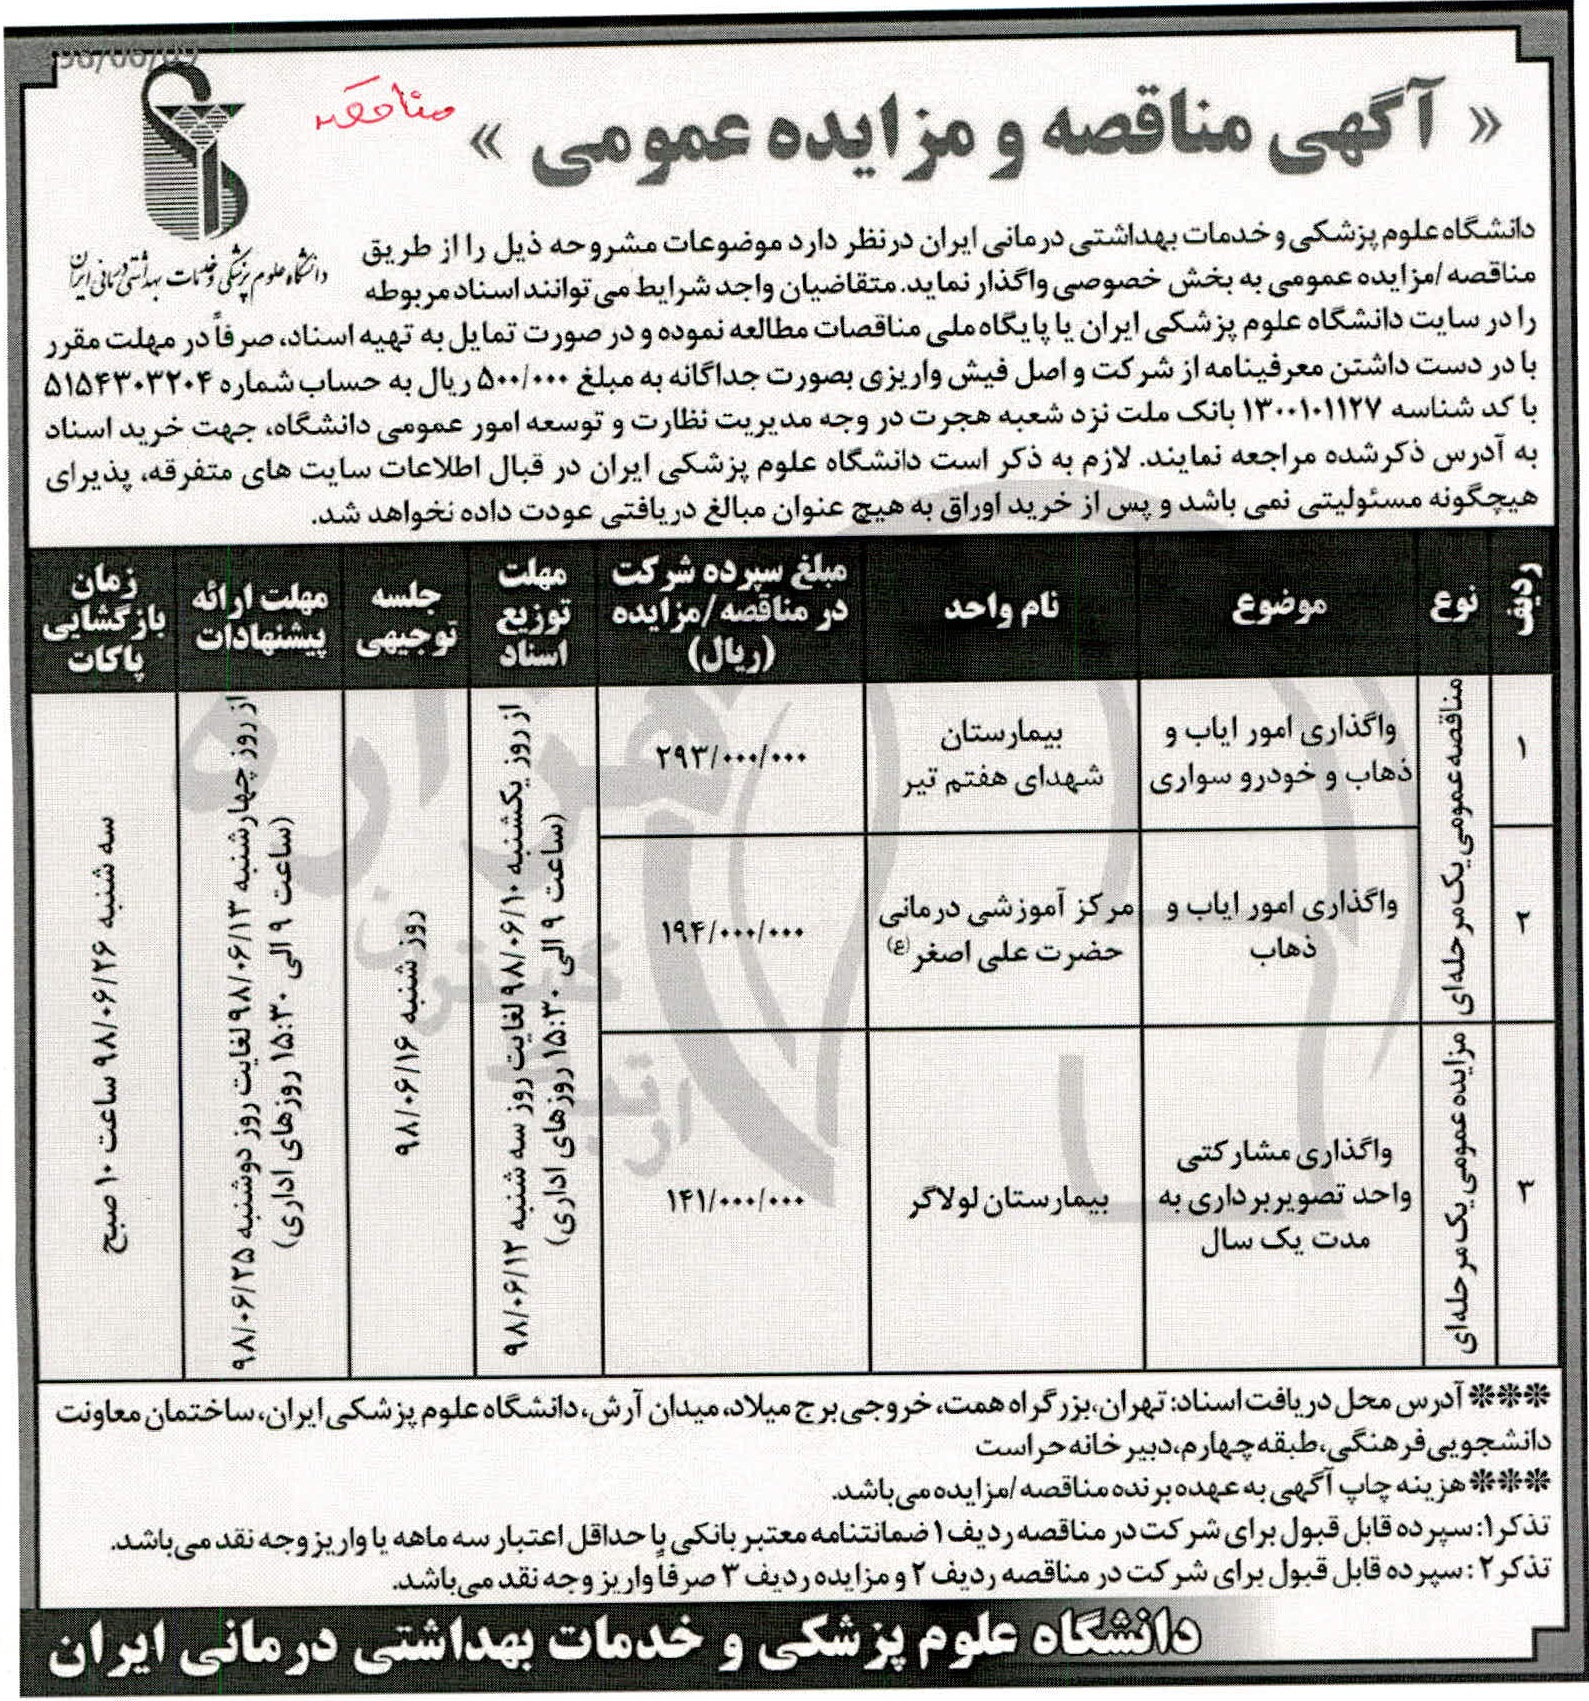 98/06/09
مناقصه
« آگهی مناقصه و مزایده عمومی »
دانشگاه علوم پزشکی و خدمات بهداشتی درمانی ایران
دانشگاه علوم پزشکی و خدمات بهداشتی درمانی ایران درنظر دارد موضوعات مشروحه ذیل را از طریق
مناقصه /مزایده عمومی به بخش خصوصی واگذار نماید. متقاضیان واجد شرایط می توانند اسناد مربوطه
را در سایت دانشگاه علوم پزشکی ایران یا پایگاه ملی مناقصات مطالعه نموده و در صورت تمایل به تهیه اسناد، صرفاً در مهلت مقرر
با در دست داشتن معرفینامه از شرکت و اصل فیش واریزی بصورت جداگانه به مبلغ ۵۰۰/۰۰۰ ریال به حساب شماره ۵۱۵۴۳۰۳۲۰۴
با کد شناسه ۱۳۰۰۱۰۱۱۲۷ بانک ملت نزد شعبه هجرت در وجه مدیریت نظارت و توسعه امور عمومی دانشگاه، جهت خرید اسناد
به آدرس ذکرشده مراجعه نمایند. لازم به ذکر است دانشگاه علوم پزشکی ایران در قبال اطلاعات سایت های متفرقه، پذیرای
هیچگونه مسئولیتی نمی باشد و پس از خرید اوراق به هیچ عنوان مبالغ دریافتی عودت داده نخواهد شد.
ردیف
نوع
موضوع
نام واحد
مبلغ سپرده شرکت
در مناقصه /مزایده
(ریال)
مهلت
توزیع
اسناد
جلسه
توجیهی
مهلت ارائه
پیشنهادات
زمان
بازگشایی
پاکات
۱
مناقصه عمومی یک مرحله‌ای
واگذاری امور ایاب و
ذهاب و خودرو سواری
بیمارستان
شهدای هفتم تیر
۲۹۳/۰۰۰/۰۰۰
از روز یکشنبه ۹۸/۰۶/۱۰ لغایت روز سه شنبه ۹۸/۰۶/۱۲
(ساعت ۹ الی ۱۵:۳۰ روزهای اداری)
روز شنبه ۹۸/۰۶/۱۶
از روز چهارشنبه ۹۸/۰۶/۱۳ لغایت روز دوشنبه ۹۸/۰۶/۲۵
(ساعت ۹ الی ۱۵:۳۰ روزهای اداری)
سه شنبه ۹۸/۰۶/۲۶ ساعت ۱۰ صبح
۲
واگذاری امور ایاب و
ذهاب
مرکز آموزشی درمانی
حضرت علی اصغر(ع)
۱۹۴/۰۰۰/۰۰۰
۳
مزایده عمومی یک مرحله‌ای
واگذاری مشارکتی
واحد تصویربرداری به
مدت یک سال
بیمارستان لولاگر
۱۴۱/۰۰۰/۰۰۰
*** آدرس محل دریافت اسناد: تهران، بزرگراه همت، خروجی برج میلاد، میدان آرش، دانشگاه علوم پزشکی ایران، ساختمان معاونت
دانشجویی فرهنگی، طبقه چهارم، دبیرخانه حراست
*** هزینه چاپ آگهی به عهده برنده مناقصه /مزایده می باشد.
تذکر۱: سپرده قابل قبول برای شرکت در مناقصه ردیف ۱ ضمانتنامه معتبر بانکی با حداقل اعتبار سه ماهه یا واریز وجه نقد می باشد.
تذکر۲: سپرده قابل قبول برای شرکت در مناقصه ردیف ۲ و مزایده ردیف ۳ صرفاً واریز وجه نقد می باشد.
دانشگاه علوم پزشکی و خدمات بهداشتی درمانی ایران